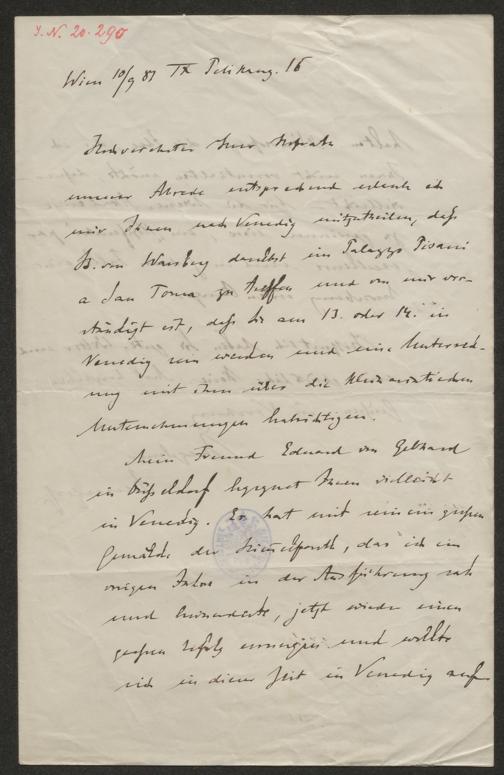 J. N. 20.290
Wien 10/9 87 IX Pelikang. 16
Hochverehrter Herr Hofrath
unserer Abrede entsprechend erlaube ich
mir Ihnen nach Venedig mitzutheilen, daß
B. von Warsberg daselbst im Palazzo Pisani
a San Toma zu treffen und von mir ver-
ständigt ist, daß Sie am 13. oder 14. in
Venedig sein werden und eine Unterred-
ung mit ihm über die kleinasiatischen
Unternehmungen beabsichtigen.
Mein Freund Eduard von Gebhard
in Düsseldorf begegnet Ihnen vielleicht
in Venedig. Er hat mit seinem großen
Gemälde der , das ich im
vorigen Jahre in der Ausführung sah
und bewunderte, jetzt wieder einen
großen Erfolg errungen und wollte
sich in dieser Zeit in Venedig auf-